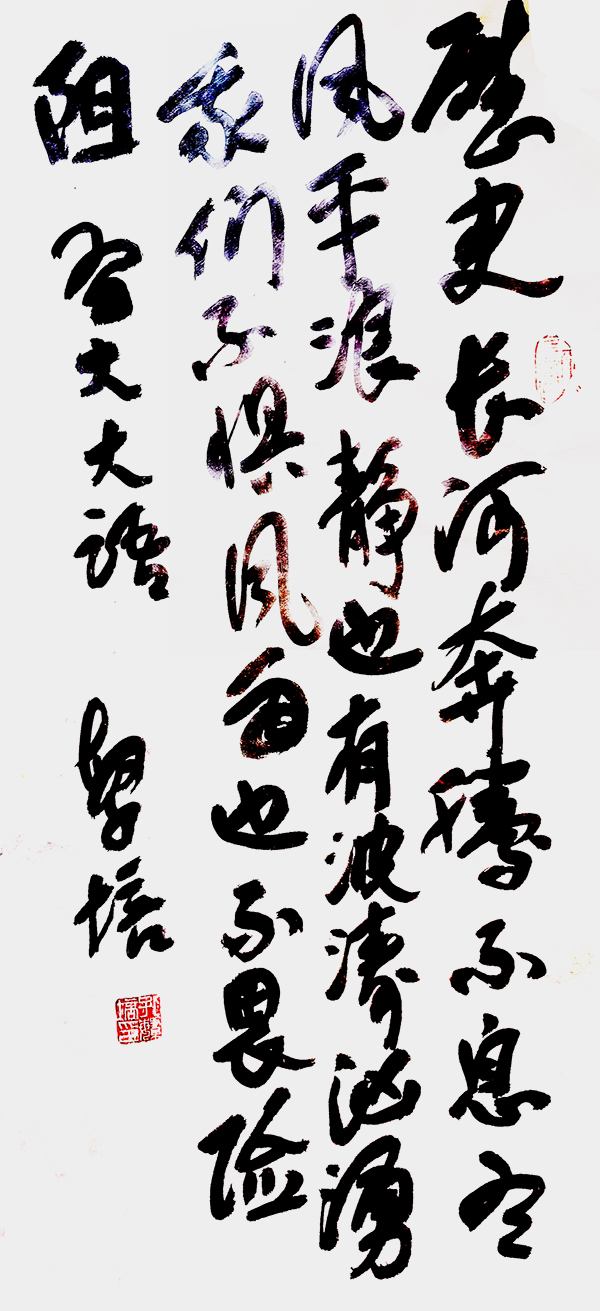 歷史长河奔腾不息有
风平浪静也有波涛汹湧
我们不惧风雨也不畏险
阻 习大大语 學培